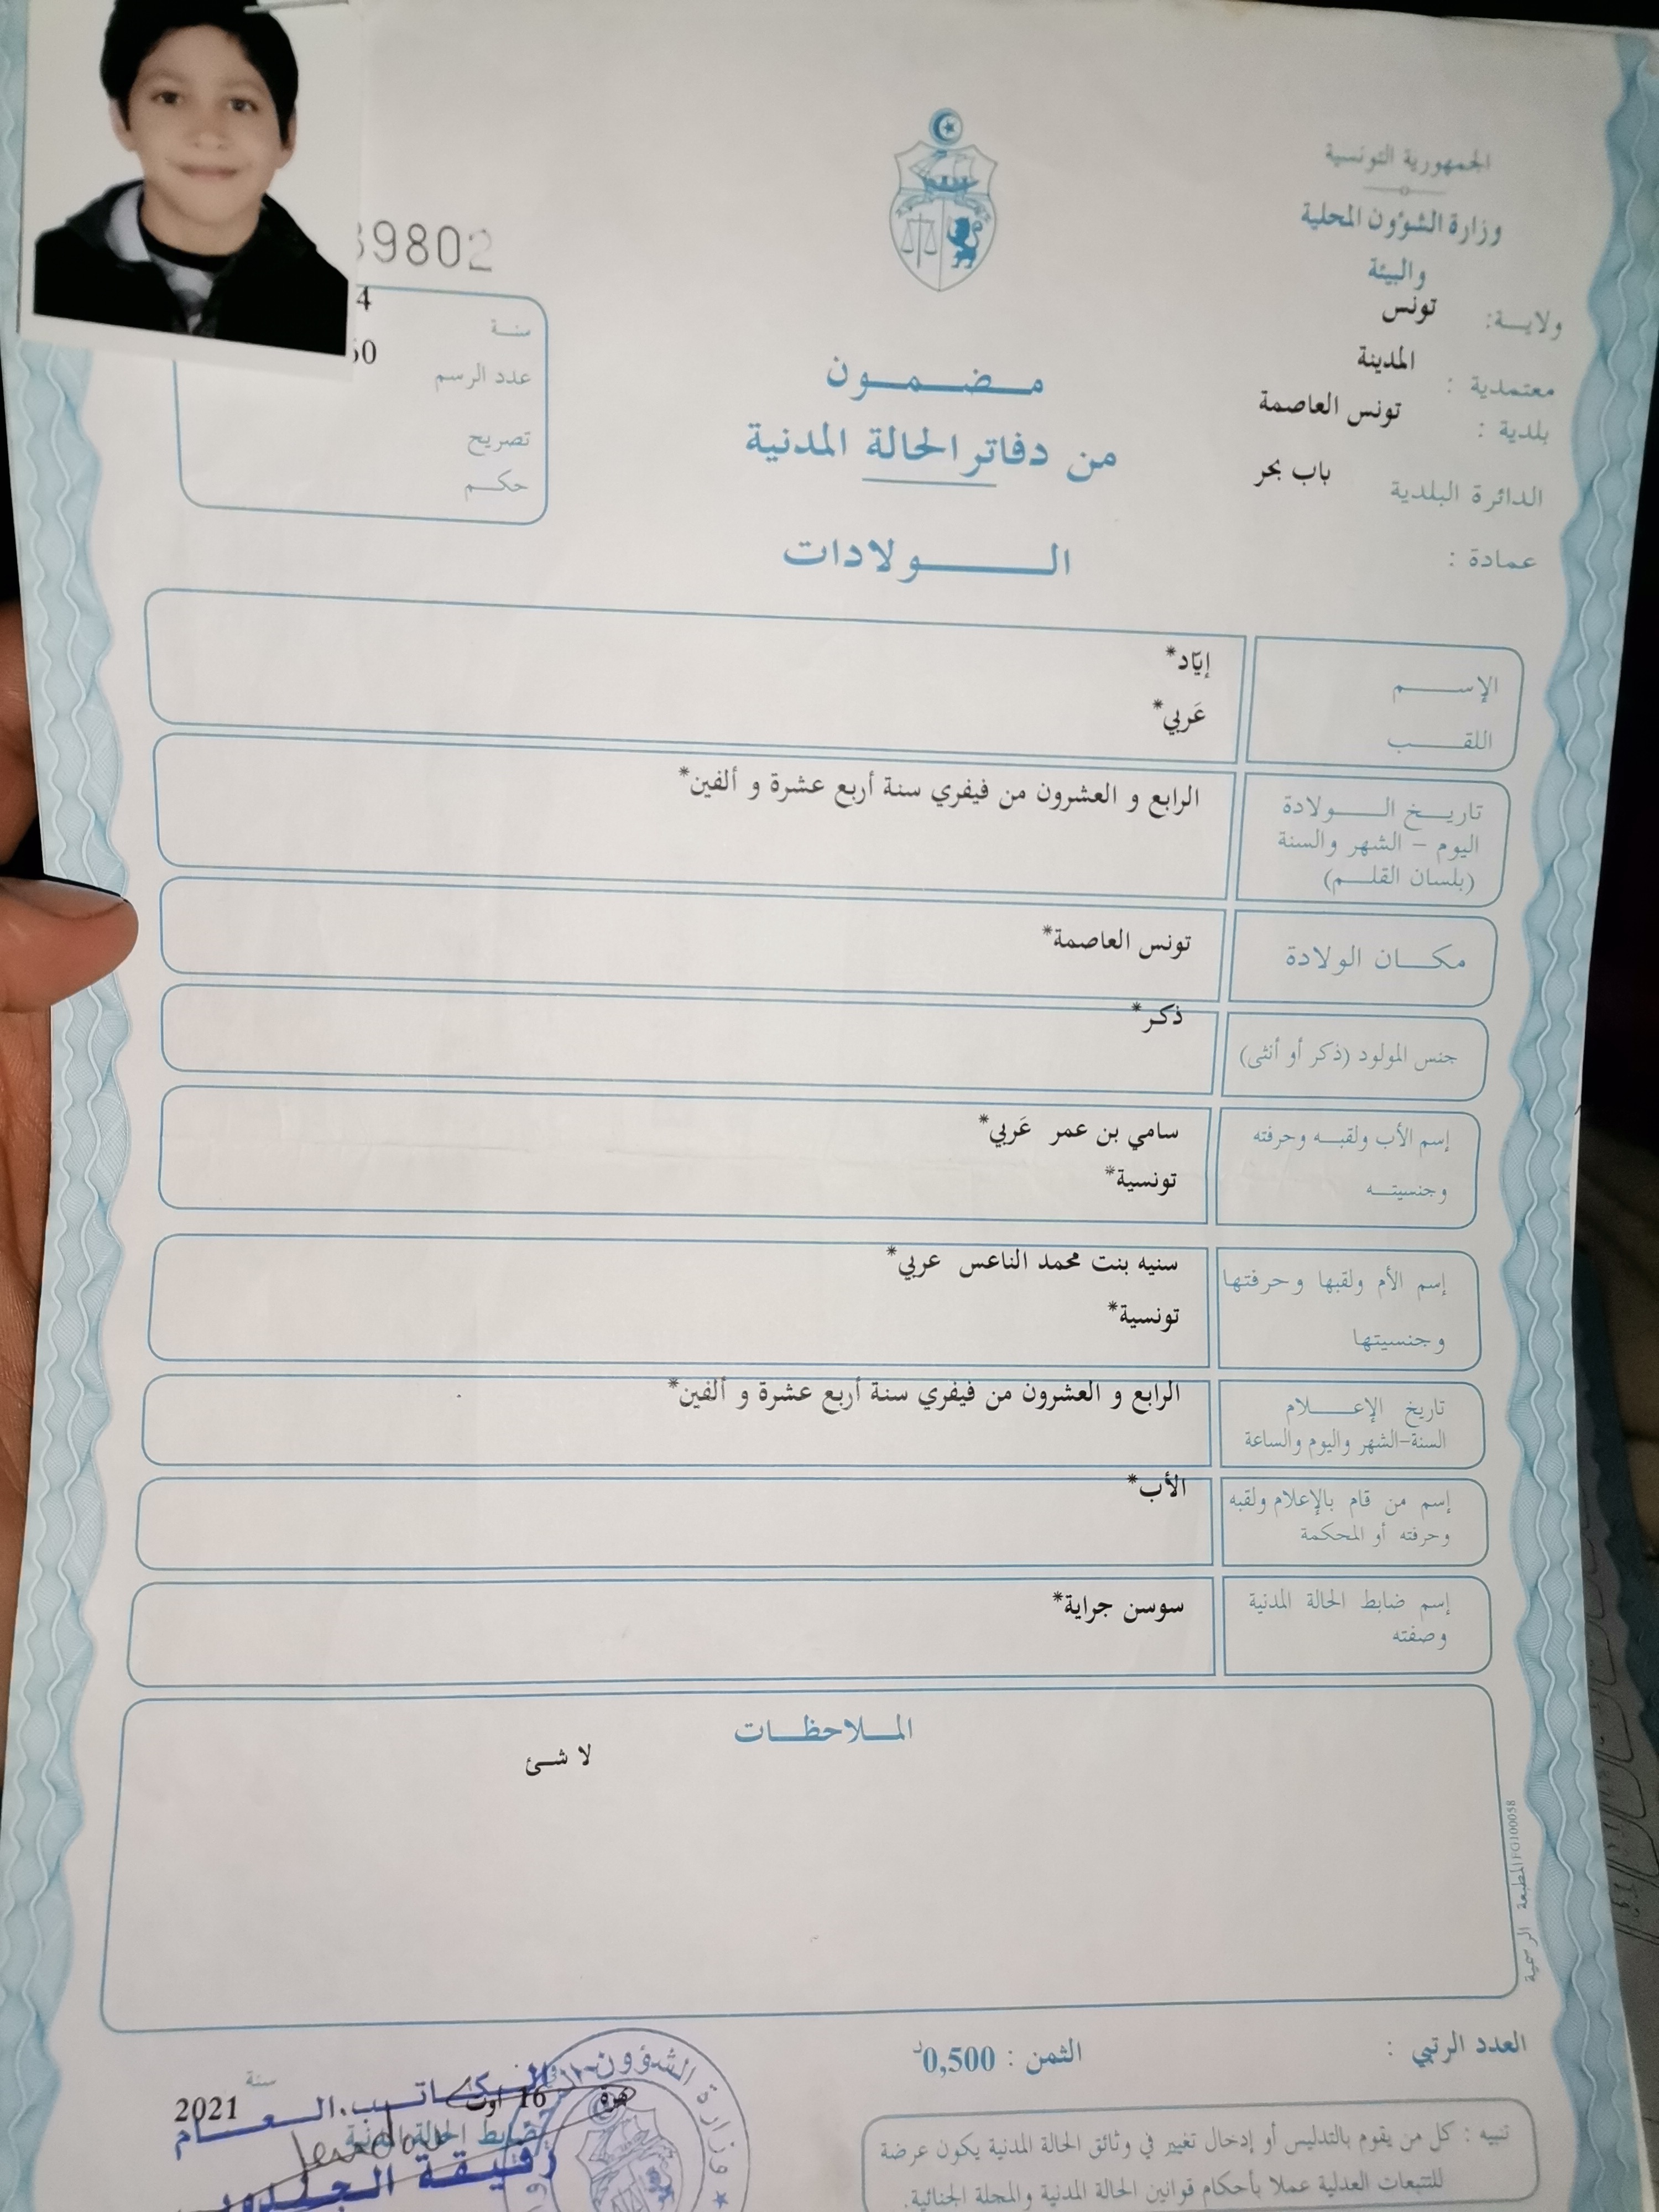 الجمهورية التونسية
وزارة الشؤون المحلية
والبيئة
ولايـة: تونس
معتمدية : المدينة
بلدية : تونس العاصمة
الدائرة البلدية باب بحر
عمادة :
مـضـمـون
من دفاتر الحالة المدنية
الـولادات
39802
سنـة 4
عدد الرسم 60
تصريح
حكـم
الإسـم إيّاد*
اللقـب عَربي*
تاريـخ الـولادة الرابع و العشرون من فيفري سنة أربع عشرة و ألفين*
اليوم - الشهر والسنة
(بلسان القلـم)
مكـان الولادة تونس العاصمة*
جنس المولود (ذكر أو أنثى) ذكر*
إسم الأب ولقبـه وحرفته سامي بن عمر عَربي*
وجنسيتـه تونسية*
إسم الأم ولقبها وحرفتها سنيه بنت محمد الناعس عربي*
وجنسيتها تونسية*
تاريخ الإعـلام الرابع و العشرون من فيفري سنة أربع عشرة و ألفين*
السنة-الشهر واليوم والساعة
إسم من قام بالإعلام ولقبه الأب*
وحرفته أو المحكمة
إسم ضابط الحالة المدنية سوسن جراية*
وصفته
المـلاحظـات
لا شئ
المطبعة الرسمية FO100058
العدد الرتبي :
الثمن : 0,500د
سنة
16 أوت 2021
ضابط الحالة المدنية
الـكـاتـب الـعـام
رفيقة
وزارة الشؤون
تنبيه : كل من يقوم بالتدليس أو إدخال تغيير في وثائق الحالة المدنية يكون عرضة
للتتبعات العدلية عملا بأحكام قوانين الحالة المدنية والمجلة الجنائية.